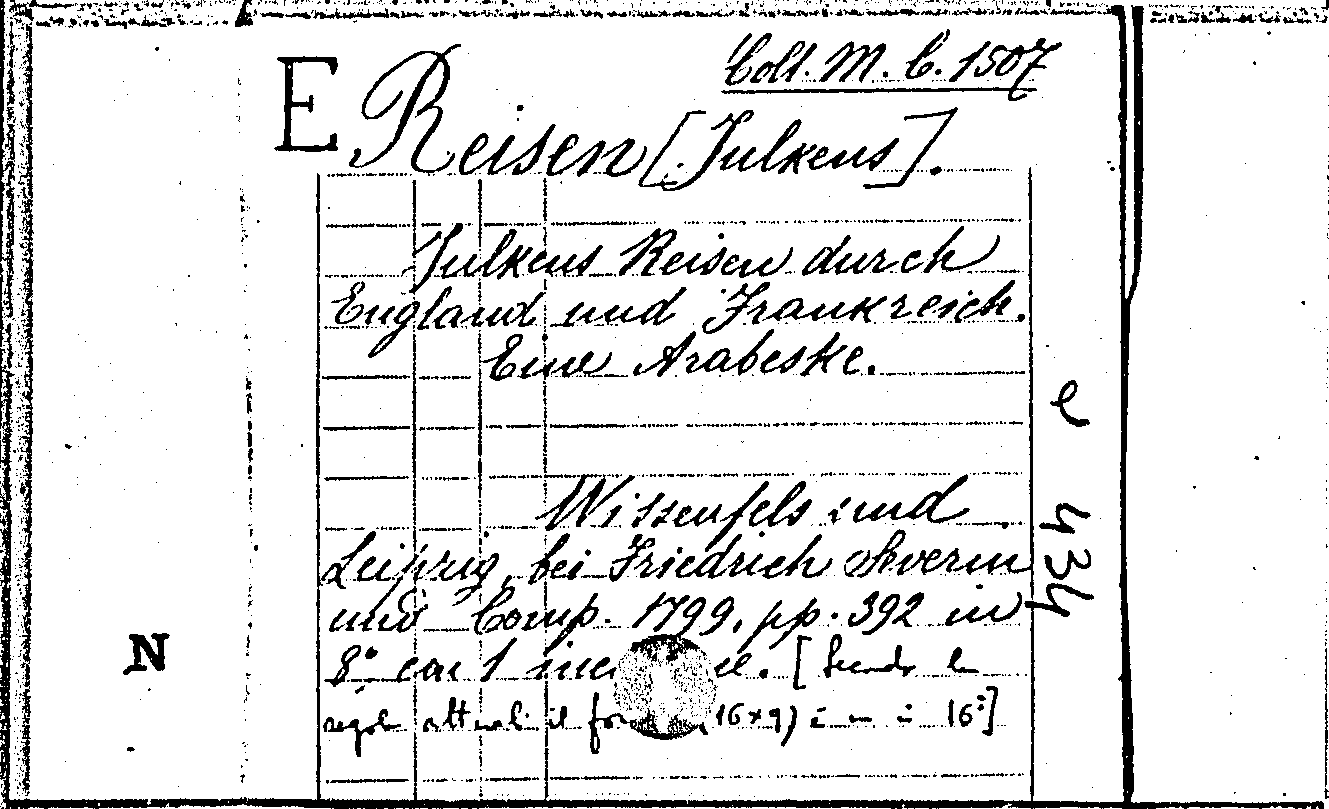 Coll. M. C. 1507
E Reisen [Julkens].
Julkens Reisen durch
England und Frankreich.
Eine Arabeske.
Wissenfels und
Leipzig, bei Friedrich Severin
und Comp. 1799, pp. 392 in
8° con 1 inc
[Secondo le
regole attuali il for (16×9) è in 16°]
e 434
N